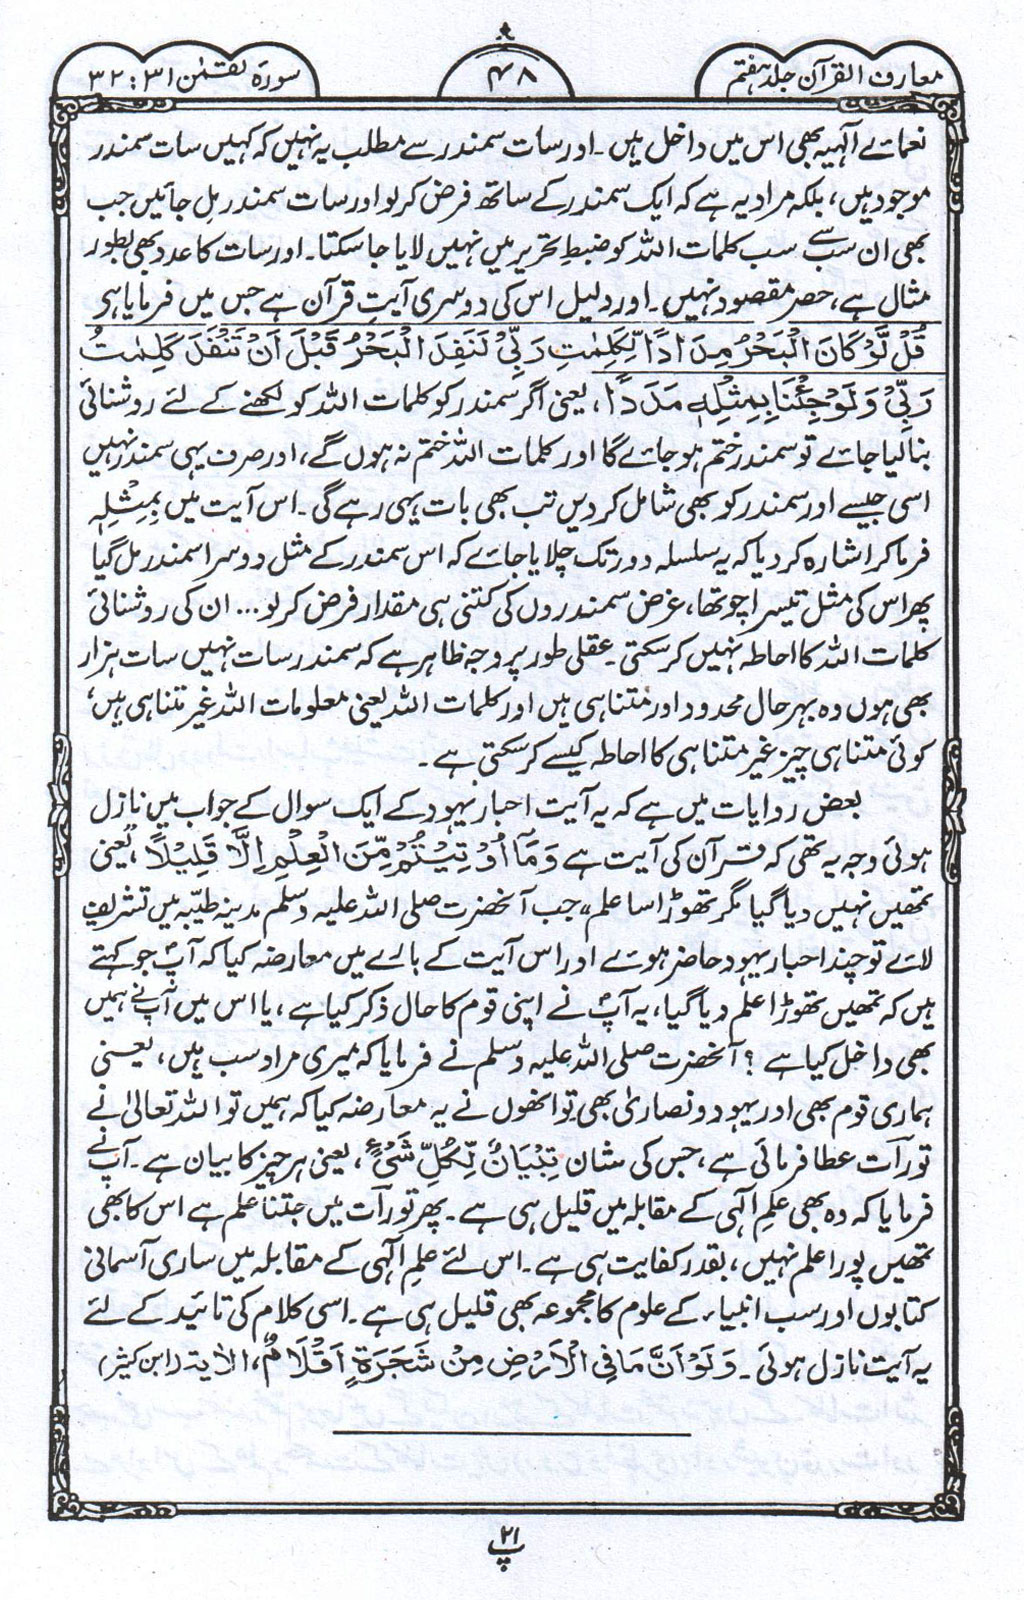 معارف القرآن جلد ہفتم
۴۸
سورۂ لقمٰن ۳۱ : ۳۲
نعمائے الٰہیہ بھی اس میں داخل ہیں۔ اور سات سمندر سے مطلب یہ نہیں کہ کہیں سات سمندر
موجود ہیں، بلکہ مراد یہ ہے کہ ایک سمندر کے ساتھ فرض کرلو اور سات سمندر مل جائیں جب
بھی ان سب سے سب کلمات اللہ کو ضبطِ تحریر میں نہیں لایا جا سکتا۔ اور سات کا عدد بھی بطور
مثال ہے، حصر مقصود نہیں۔ اور دلیل اس کی دوسری آیتِ قرآن ہے جس میں فرمایا ہی
قُلْ لَّوْ كَانَ الْبَحْرُ مِدَادًا لِّكَلِمٰتِ رَبِّيْ لَنَفِدَ الْبَحْرُ قَبْلَ اَنْ تَنْفَدَ كَلِمٰتُ
رَبِّيْ وَلَوْ جِئْنَا بِمِثْلِهٖ مَدَدًا، یعنی اگر سمندر کو کلمات اللہ کو لکھنے کے لئے روشنائی
بنا لیا جائے تو سمندر ختم ہو جائے گا اور کلمات اللہ ختم نہ ہوں گے، اور صرف یہی سمندر نہیں
اسی جیسے اور سمندر کو بھی شامل کردیں تب بھی بات یہی رہے گی۔ اس آیت میں بِمِثْلِهٖ
فرما کر اشارہ کر دیا کہ یہ سلسلہ دور تک چلایا جائے کہ اس سمندر کے مثل دوسرا سمندر مل گیا
پھر اس کی مثل تیسرا چوتھا، غرض سمندروں کی کتنی ہی مقدار فرض کرلو ... ان کی روشنائی
کلمات اللہ کا احاطہ نہیں کر سکتی۔ عقلی طور پر وجہ ظاہر ہے کہ سمندر سات نہیں سات ہزار
بھی ہوں وہ بہر حال محدود اور متناہی ہیں اور کلمات اللہ یعنی معلومات اللہ غیر متناہی ہیں،
کوئی متناہی چیز غیر متناہی کا احاطہ کیسے کر سکتی ہے۔
بعض روایات میں ہے کہ یہ آیت احبار یہود کے ایک سوال کے جواب میں نازل
ہوئی وجہ یہ تھی کہ قرآن کی آیت ہے وَمَآ اُوْتِيْتُمْ مِّنَ الْعِلْمِ اِلَّا قَلِيْلًا، "یعنی
تمھیں نہیں دیا گیا مگر تھوڑا سا علم" جب آنحضرت صلی اللہ علیہ وسلم مدینہ طیّبہ میں تشریف
لائے تو چند احبار یہود حاضر ہوئے اور اس آیت کے بارے میں معارضہ کیا کہ آپؐ جو کہتے
ہیں کہ تمھیں تھوڑا علم دیا گیا، یہ آپؐ نے اپنی قوم کا حال ذکر کیا ہے، یا اس میں آپؐ نے ہمیں
بھی داخل کیا ہے؟ آنحضرت صلی اللہ علیہ وسلم نے فرمایا کہ میری مراد سب ہیں، یعنی
ہماری قوم بھی اور یہود و نصاریٰ بھی تو انھوں نے یہ معارضہ کیا کہ ہمیں تو اللہ تعالیٰ نے
تورات عطا فرمائی ہے، جس کی شان تِبْيَانٌ لِّكُلِّ شَيْءٍ، یعنی ہر چیز کا بیان ہے۔ آپؐ نے
فرمایا کہ وہ بھی علمِ الٰہی کے مقابلہ میں قلیل ہی ہے۔ پھر تورات میں جتنا علم ہے اس کا بھی
تمھیں پورا علم نہیں، بقدر کفایت ہی ہے۔ اس لئے علمِ الٰہی کے مقابلہ میں ساری آسمانی
کتابوں اور سب انبیاء کے علوم کا مجموعہ بھی قلیل ہی ہے۔ اسی کلام کی تائید کے لئے
یہ آیت نازل ہوئی۔ وَلَوْ اَنَّ مَا فِي الْاَرْضِ مِنْ شَجَرَةٍ اَقْلَامٌ، الاٰیۃ (ابن کثیر)
پ ۲۱